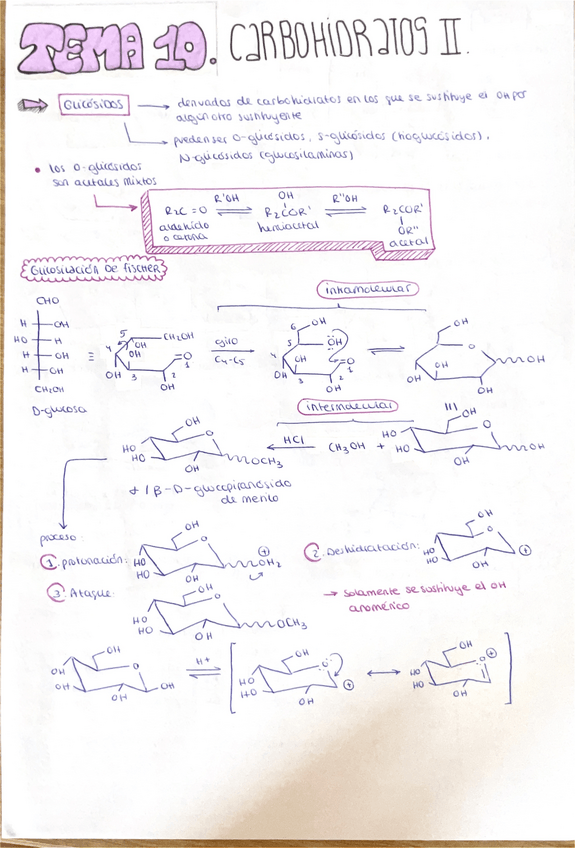 TEMA 10. CARBOHIDRATOS II.
GLICÓSIDOS → derivados de carbohidratos en los que se sustituye el OH por
algún otro sustituyente
→ pueden ser O-glicósidos, S-glicósidos (tioglucósidos),
N-glicósidos (glucosilaminas)
• los O-glicósidos
son acetales mixtos
R'OH OH R"OH
R₂C=O ⇌ R₂COR' ⇌ R₂COR'
aldehido hemiacetal OR"
o cetona acetal
Glicosilación de Fischer
intramolecular
CHO
H OH
HO H
H OH
H OH
CH₂OH
D-glucosa
≡
5 CH₂OH
OH
4
OH
OH 3 2 1
O
OH
giro
C₄-C₅
6 OH
5 OH
4 OH
OH 3 2 1
O
OH
⇌
OH
OH
OH
OH
OH
intermolecular
OH
HO
HO
O
OH
OCH₃
HCl
←
CH₃OH +
OH
HO
HO
O
OH
OH
α/β-D-glucopiranósido
de metilo
proceso:
1. protonación:
OH
HO
HO
O
OH
⊕
OH₂
2. Deshidratación:
OH
HO
HO
O
OH
⊕
3. Ataque:
OH
HO
HO
O
OH
OCH₃
→ Solamente se sustituye el OH
anomérico
OH
OH
OH
O
OH
OH
H+
⇌
OH
HO
HO
O
OH
⊕
↔
OH
HO
HO
O
⊕
OH